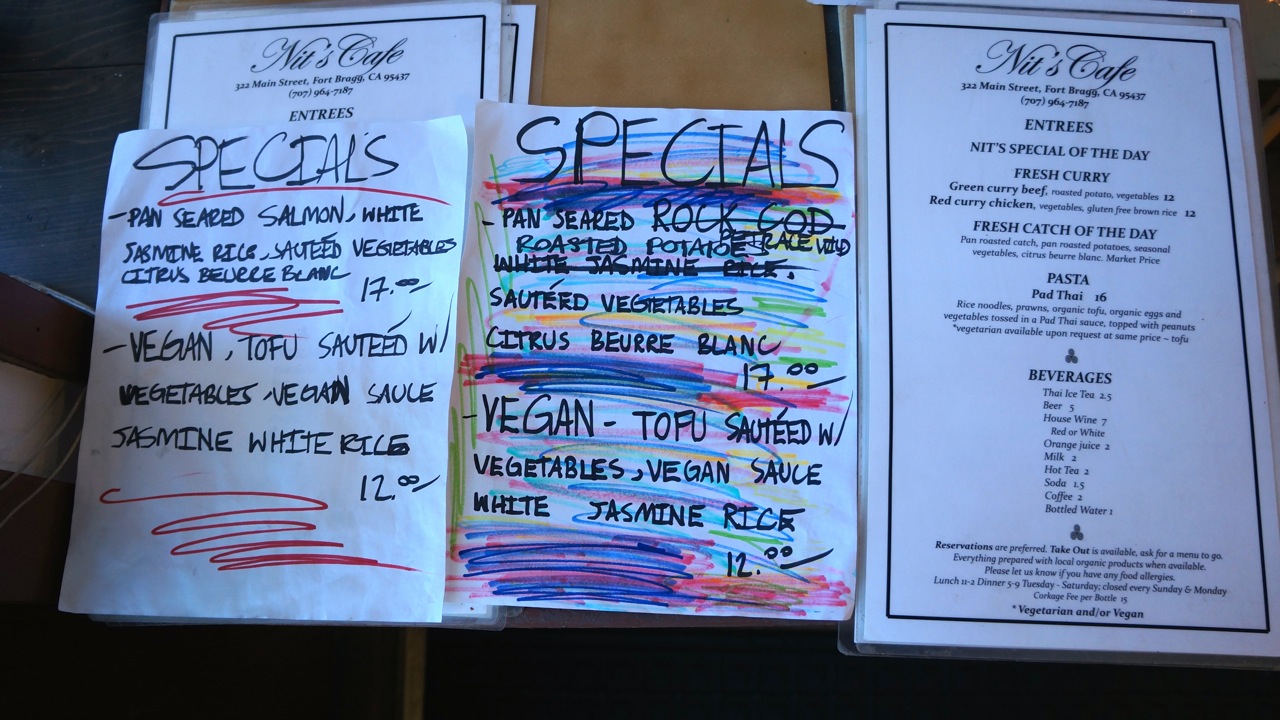 Nit's Cafe
322 Main Street, Fort Bragg, CA 95437
(707) 964-7187
ENTREES
SPECIALS
-PAN SEARED SALMON, WHITE
JASMINE RICE, SAUTEÉD VEGETABLES
CITRUS BEURRE BLANC
17.00
-VEGAN, TOFU SAUTEÉD W/
VEGETABLES, VEGAN SAUCE
JASMINE WHITE RICE
12.00
SPECIALS
-PAN SEARED ROCK COD
ROASTED POTATOES
WHITE JASMINE RICE.
SAUTÉED VEGETABLES
CITRUS BEURRE BLANC
17.00
-VEGAN - TOFU SAUTÉED W/
VEGETABLES, VEGAN SAUCE
WHITE JASMINE RICE
12.00
Nit's Cafe
322 Main Street, Fort Bragg, CA 95437
(707) 964-7187
ENTREES
NIT'S SPECIAL OF THE DAY
FRESH CURRY
Green curry beef, roasted potato, vegetables 12
Red curry chicken, vegetables, gluten free brown rice 12
FRESH CATCH OF THE DAY
Pan roasted catch, pan roasted potatoes, seasonal
vegetables, citrus beurre blanc. Market Price
PASTA
Pad Thai 16
Rice noodles, prawns, organic tofu, organic eggs and
vegetables tossed in a Pad Thai sauce, topped with peanuts
*vegetarian available upon request at same price ~ tofu
BEVERAGES
Thai Ice Tea 2.5
Beer 5
House Wine 7
Red or White
Orange juice 2
Milk 2
Hot Tea 2
Soda 1.5
Coffee 2
Bottled Water 1
Reservations are preferred. Take Out is available, ask for a menu to go.
Everything prepared with local organic products when available.
Please let us know if you have any food allergies.
Lunch 11-2 Dinner 5-9 Tuesday - Saturday; closed every Sunday & Monday
Corkage Fee per Bottle 15
* Vegetarian and/or Vegan